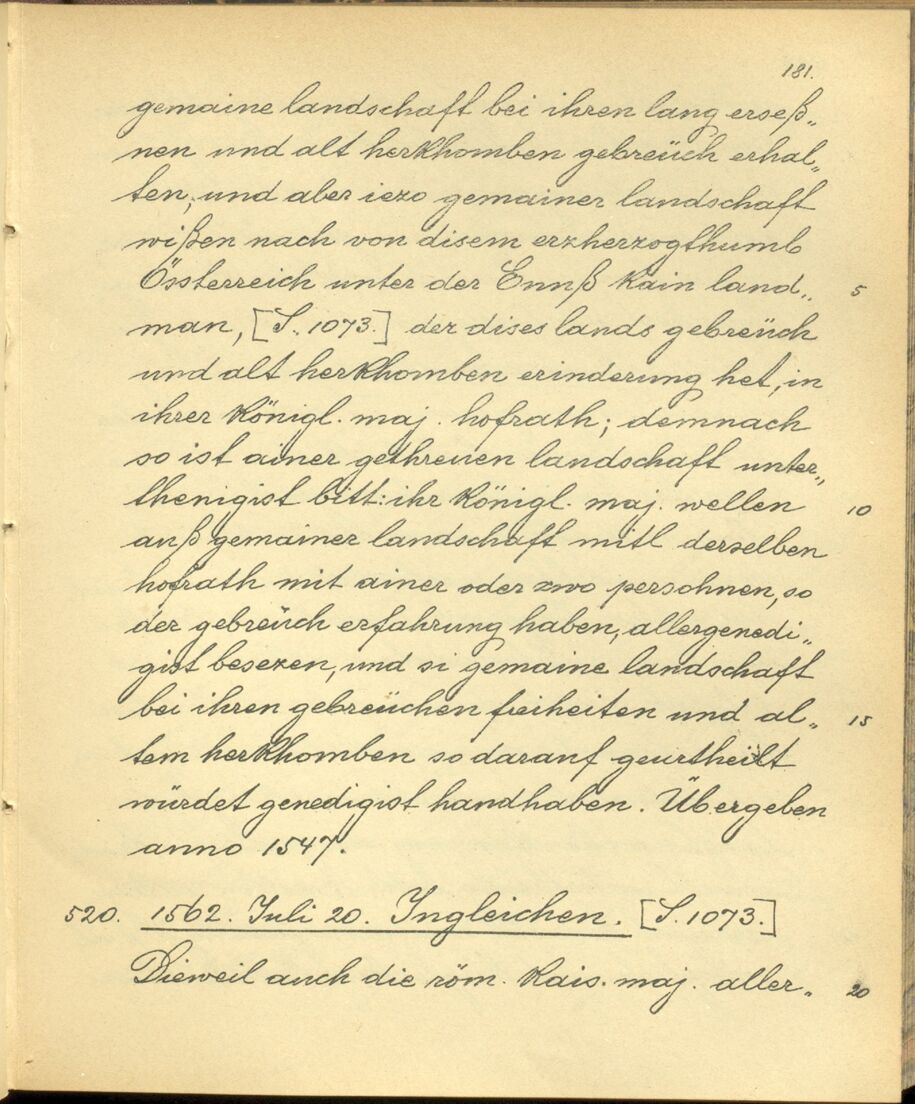 181.
gemaine landschaft bei ihren lang erseß„
nen und alt herkhomben gebreüch erhal„
ten; und aber iezo gemainer landschaft
wißen nach von disem erzherzogthumb
Össterreich unter der Ennß kain land„ 5
man, [S. 1073.] der dises lands gebreüch
und alt herkhomben erinderung het, in
ihrer königl. maj. hofrath; demnach
so ist ainer gethreuen landschaft unter„
thenigist bitt: ihr königl. maj. wellen 10
auß gemainer landschaft mitl derselben
hofrath mit ainer oder zwo persohnen, so
der gebreüch erfahrung haben, allergenedi„
gist besezen, und si gemaine landschaft
bei ihren gebreüchen freiheiten und al„ 15
tem herkhomben so darauf geurtheilt
würdet genedigist handhaben. Übergeben
anno 1547.
520. 1562. Juli 20. Ingleichen. [S. 1073.]
Dieweil auch die röm. kais. maj. aller„ 20